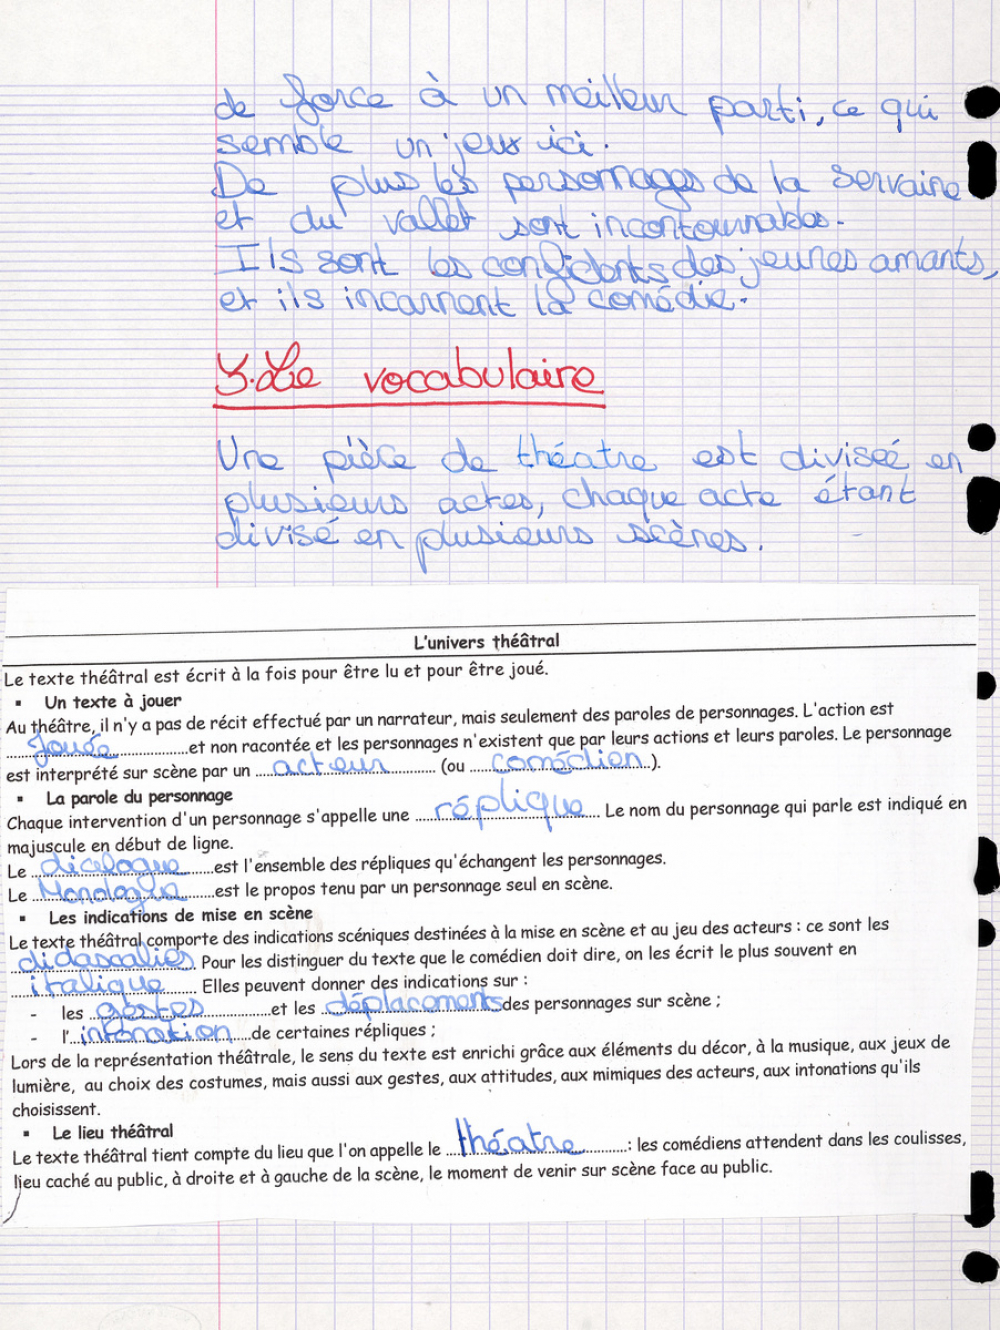 de force à un meilleur parti, ce qui
semble un jeux ici.
De plus les personnages de la servaine
et du vallet sont incontournables.
Ils sont les confidents des jeunes amants,
et ils incarnent la comédie.
3. Le vocabulaire
Une pièce de théatre est diviseé en
plusieurs actes, chaque acte étant
divisé en plusieurs scènes.
L'univers théâtral
Le texte théâtral est écrit à la fois pour être lu et pour être joué.
▪ Un texte à jouer
Au théâtre, il n'y a pas de récit effectué par un narrateur, mais seulement des paroles de personnages. L'action est
Jouée et non racontée et les personnages n'existent que par leurs actions et leurs paroles. Le personnage
est interprété sur scène par un acteur (ou comédien).
▪ La parole du personnage
Chaque intervention d'un personnage s'appelle une réplique. Le nom du personnage qui parle est indiqué en
majuscule en début de ligne.
Le dialogue est l'ensemble des répliques qu'échangent les personnages.
Le est le propos tenu par un personnage seul en scène.
▪ Les indications de mise en scène
Le texte théâtral comporte des indications scéniques destinées à la mise en scène et au jeu des acteurs : ce sont les
didascalies. Pour les distinguer du texte que le comédien doit dire, on les écrit le plus souvent en
italique. Elles peuvent donner des indications sur :
- les gestes et les déplacements des personnages sur scène ;
- l'intonation de certaines répliques ;
Lors de la représentation théâtrale, le sens du texte est enrichi grâce aux éléments du décor, à la musique, aux jeux de
lumière, au choix des costumes, mais aussi aux gestes, aux attitudes, aux mimiques des acteurs, aux intonations qu'ils
choisissent.
▪ Le lieu théâtral
Le texte théâtral tient compte du lieu que l'on appelle le théatre : les comédiens attendent dans les coulisses,
lieu caché au public, à droite et à gauche de la scène, le moment de venir sur scène face au public.